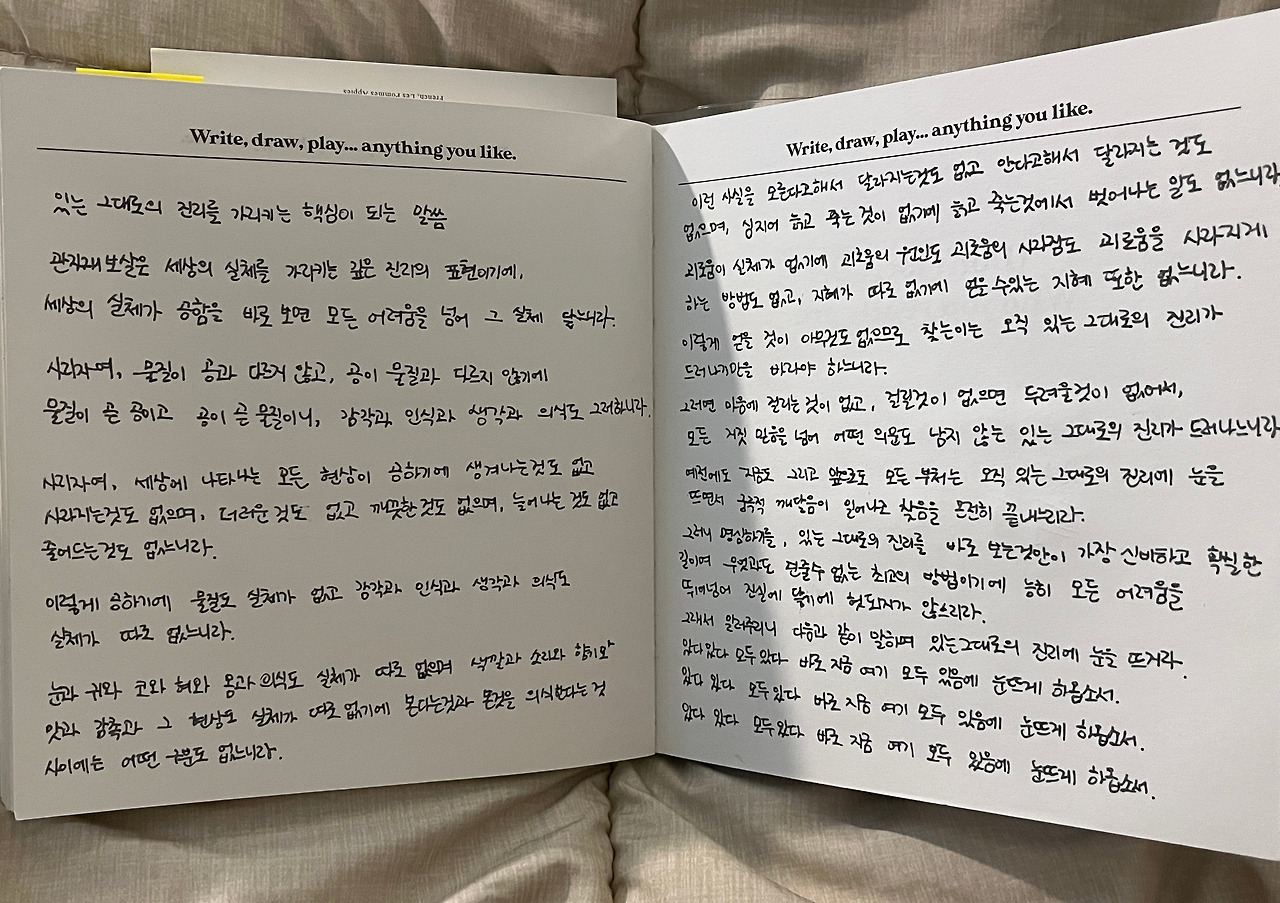 French, Les Pommes Apples
Write, draw, play... anything you like.
있는 그대로의 진리를 가리키는 핵심이 되는 말씀
관자재보살은 세상의 실체를 가리키는 깊은 진리의 표현이기에,
세상의 실체가 공함을 바로 보면 모든 어려움을 넘어 그 실체 닿느니라.
사리자여, 물질이 공과 다르지 않고, 공이 물질과 다르지 않기에
물질이 곧 공이고 공이 곧 물질이니, 감각과 인식과 생각과 의식도 그러하니라.
사리자여, 세상에 나타나는 모든 현상이 공하기에 생겨나는것도 없고
사라지는것도 없으며, 더러운 것도 없고 깨끗한것도 없으며, 늘어나는 것도 없고
줄어드는것도 없느니라.
이렇게 공하기에 물질도 실체가 없고 감각과 인식과 생각과 의식도
실체가 따로 없느니라.
눈과 귀와 코와 혀와 몸과 의식도 실체가 따로 없으며 색깔과 소리와 향기와
맛과 감촉과 그 현상도 실체가 따로 없기에 본다는것과 본것을 의식한다는 것
사이에는 어떤 구분도 없느니라.
Write, draw, play... anything you like.
이런 사실을 모른다고해서 달라지는것도 없고 안다고해서 달라지는 것도
없으며, 심지어 늙고 죽는 것이 없기에 늙고 죽는것에서 벗어나는 일도 없느니라
괴로움이 실체가 없기에 괴로움의 원인도 괴로움의 사라짐도 괴로움을 사라지게
하는 방법도 없고, 지혜가 따로 없기에 얻을 수있는 지혜 또한 없느니라.
이렇게 얻을 것이 아무것도 없으므로 찾는이는 오직 있는 그대로의 진리가
드러나기만을 바라야 하느니라.
그러면 마음에 걸리는 것이 없고, 걸릴것이 없으면 두려울것이 없어서,
모든 거짓 믿음을 넘어 어떤 의문도 남지 않는 있는 그대로의 진리가 드러나느니라
예전에도 지금도 그리고 앞으로도 모든 부처는 오직 있는 그대로의 진리에 눈을
뜨면서 궁극적 깨달음이 일어나고 찾음을 온전히 끝내느니라.
그러니 명상하기를, 있는 그대로의 진리를 바로 보는것만이 가장 신비하고 확실한
길이며 무엇과도 견줄수 없는 최고의 방법이기에 능히 모든 어려움을
뛰어넘어 진실에 닿기에 헛되지가 않으리라.
그래서 알려주리니 다음과 같이 말하며 있는그대로의 진리에 눈을 뜨거라.
있다 있다 모두 있다 바로 지금 여기 모두 있음에 눈뜨게 하옵소서.
있다 있다 모두 있다 바로 지금 여기 모두 있음에 눈뜨게 하옵소서.
있다 있다 모두 있다 바로 지금 여기 모두 있음에 눈뜨게 하옵소서.